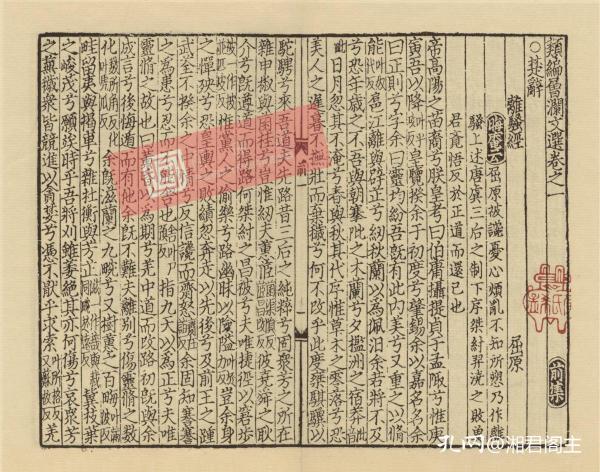 類編層瀾文選卷之一
○楚辭
離騷經 屈原
晦庵云 屈原被讒憂心煩亂不知所愬乃作離
騷上述唐虞三后之制下序桀紂羿澆之敗冀
君覺悟反於正道而還己也
帝高陽之苗裔兮朕皇考曰伯庸攝提貞于孟陬兮惟庚
寅吾以降皇覽揆余于初度兮肇錫余以嘉名名余
曰正則兮字余曰靈均紛吾既有此内美兮又重之以脩
能扈江離與辟芷兮紉秋蘭以為佩汨余若將不及
兮恐年歲之不吾與朝搴阰之木蘭兮夕攬洲之宿莽
日月忽其不淹兮春與秋其代序惟草木之零落兮恐
美人之遲暮不撫壯而棄穢兮何不改乎此度乘騏驥以
馳騁兮來吾道夫先路昔三后之純粹兮固衆芳之所在
雜申椒與菌桂兮豈惟紉夫蕙茝彼堯舜之耿
介兮既遵道而得路何桀紂之昌被兮夫唯捷徑以窘步
惟黨人之偷樂兮路幽昧以險隘豈余身
之憚殃兮恐皇輿之敗績忽奔走以先後兮及前王之踵
武荃不揆余之中情兮反信讒而齌怒余固知謇謇
之為患兮忍而不能舍也指九天以為正兮夫唯
靈脩之故也曰黃昏以為期兮羌中道而改路初既與余
成言兮後悔遁而有他余既不難夫離別兮傷靈脩之數
化余既滋蘭之九畹兮又樹蕙之百畝
畦留夷與揭車兮雜杜衡與芳芷冀枝葉
之峻茂兮願竢時乎吾將刈雖萎絕其亦何傷兮哀衆芳
之蕪穢衆皆競進以貪婪兮憑不猒乎求索羌
前集
孔网@湘君阁主